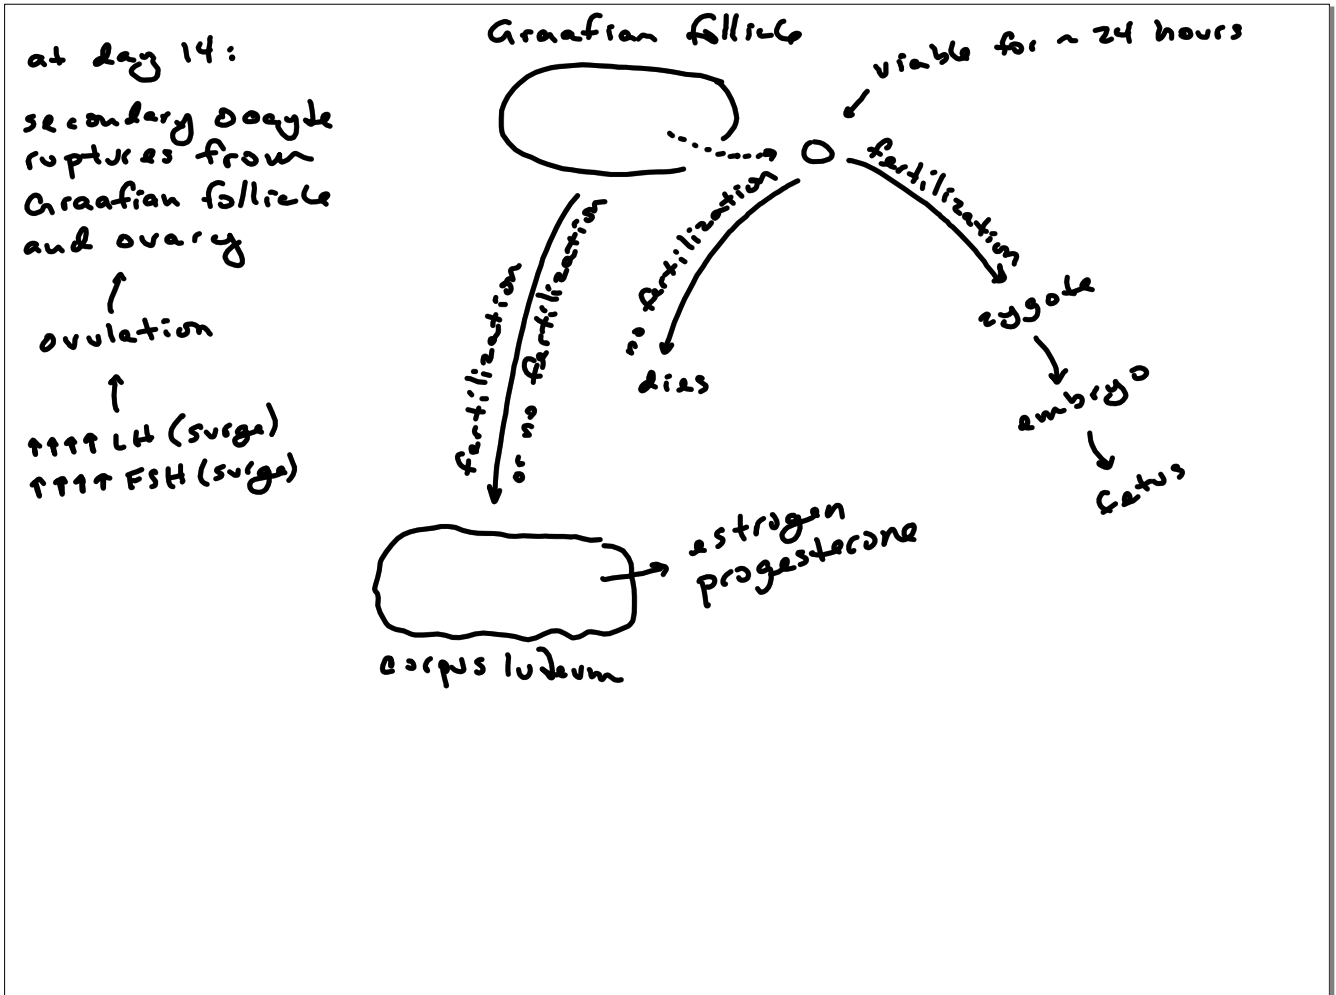 at day 14:
secondary oocyte
ruptures from
Graafian follicle
and ovary
ovulation
↑↑↑↑ LH (surge)
↑↑↑↑ FSH (surge)
Graafian follicle
viable for ~ 24 hours
fertilization
or no fertilization
no fertilization
dies
fertilization
zygote
embryo
fetus
estrogen
progesterone
corpus luteum